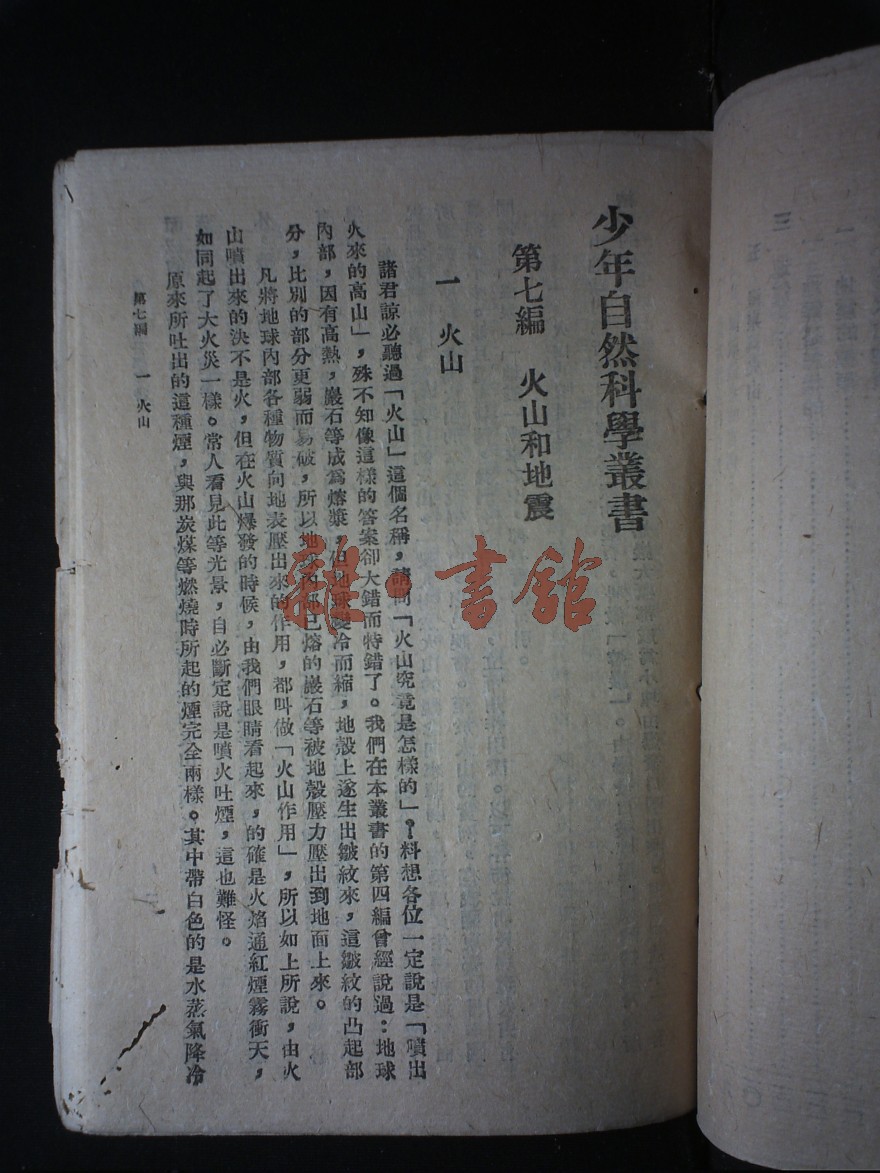 少年自然科學叢書
第七編　火山和地震
一　火山
諸君諒必聽過「火山」這個名稱，請問「火山究竟是怎樣的」？料想各位一定說是「噴出
火來的高山」，殊不知像這樣的答案卻大錯而特錯了。我們在本叢書的第四編曾經說過：地球
內部，因有高熱，巖石等成爲熔漿，但地球變冷而縮，地殼上遂生出皺紋來，這皺紋的凸起部
分，比別的部分更弱而易破，所以地球內部已熔的巖石等被地殼壓力壓出到地面上來。
凡將地球內部各種物質向地表壓出來的作用，都叫做「火山作用」，所以如上所說，由火
山噴出來的決不是火，但在火山爆發的時候，由我們眼睛看起來，的確是火焰通紅煙霧衝天，
如同起了大火災一樣。常人看見此等光景，自必斷定說是噴火吐煙，這也難怪。
原來所吐出的這種煙，與那炭煤等燃燒時所起的煙完全兩樣。其中帶白色的是水蒸氣降冷
第七編　一　火山
雜·書館